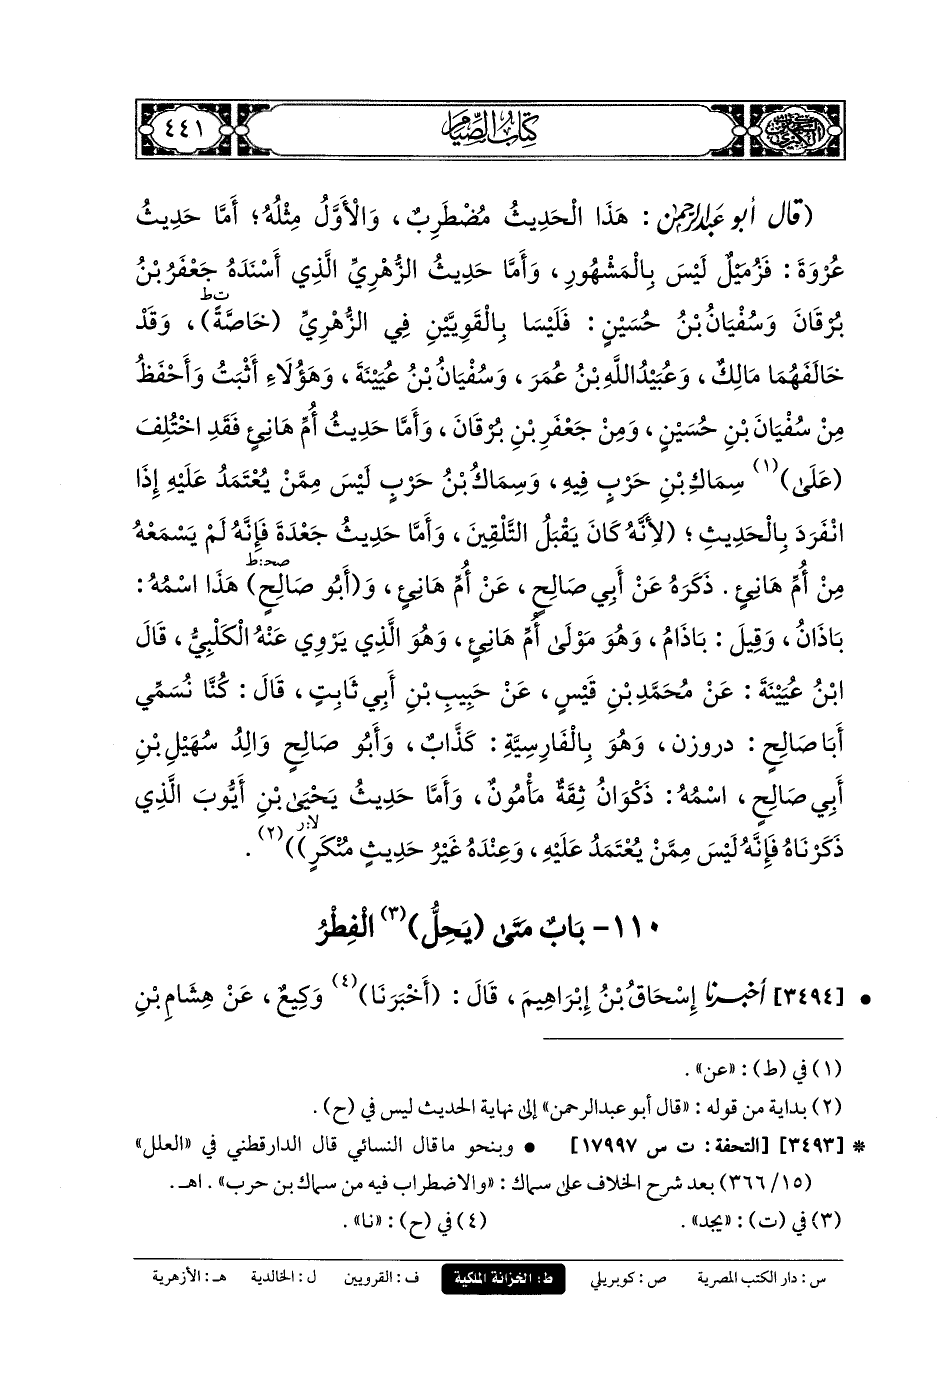 كتاب الصيام
٤٤١
(قال أبو عبدالرحمن : هَذَا الْحَدِيثُ مُضْطَرِبٌ ، وَالْأَوَّلُ مِثْلُهُ ؛ أَمَّا حَدِيثُ
عُرْوَةَ : فَزُمَيْلٌ لَيْسَ بِالْمَشْهُورِ ، وَأَمَّا حَدِيثُ الزُّهْرِيِّ الَّذِي أَسْنَدَهُ جَعْفَرُ بْنُ
بُرْقَانَ وَسُفْيَانُ بْنُ حُسَيْنٍ : فَلَيْسَا بِالْقَوِيَّيْنِ فِي الزُّهْرِيِّ (خَاصَّةً)ت ط ، وَقَدْ
خَالَفَهُمَا مَالِكٌ ، وَعُبَيْدُاللَّهِ بْنُ عُمَرَ ، وَسُفْيَانُ بْنُ عُيَيْنَةَ ، وَهَؤُلَاءِ أَثْبَتُ وَأَحْفَظُ
مِنْ سُفْيَانَ بْنِ حُسَيْنٍ ، وَمِنْ جَعْفَرِ بْنِ بُرْقَانَ ، وَأَمَّا حَدِيثُ أُمِّ هَانِئٍ فَقَدِ اخْتُلِفَ
(عَلَىٰ)(١) سِمَاكِ بْنِ حَرْبٍ فِيهِ ، وَسِمَاكُ بْنُ حَرْبٍ لَيْسَ مِمَّنْ يُعْتَمَدُ عَلَيْهِ إِذَا
انْفَرَدَ بِالْحَدِيثِ ؛ (لِأَنَّهُ كَانَ يَقْبَلُ التَّلْقِينَ ، وَأَمَّا حَدِيثُ جَعْدَةَ فَإِنَّهُ لَمْ يَسْمَعْهُ
مِنْ أُمِّ هَانِئٍ . ذَكَرَهُ عَنْ أَبِي صَالِحٍ ، عَنْ أُمِّ هَانِئٍ ، وَ(أَبُو صَالِحٍ)صحـ:ط هَذَا اسْمُهُ :
بَاذَانُ ، وَقِيلَ : بَاذَامُ ، وَهُوَ مَوْلَىٰ أُمِّ هَانِئٍ ، وَهُوَ الَّذِي يَرْوِي عَنْهُ الْكَلْبِيُّ ، قَالَ
ابْنُ عُيَيْنَةَ : عَنْ مُحَمَّدِ بْنِ قَيْسٍ ، عَنْ حَبِيبِ بْنِ أَبِي ثَابِتٍ ، قَالَ : كُنَّا نُسَمِّي
أَبَا صَالِحٍ : دروزن ، وَهُوَ بِالْفَارِسِيَّةِ : كَذَّابٌ ، وَأَبُو صَالِحٍ وَالِدُ سُهَيْلِ بْنِ
أَبِي صَالِحٍ ، اسْمُهُ : ذَكْوَانُ ثِقَةٌ مَأْمُونٌ ، وَأَمَّا حَدِيثُ يَحْيَىٰ بْنِ أَيُّوبَ الَّذِي
ذَكَرْنَاهُ فَإِنَّهُ لَيْسَ مِمَّنْ يُعْتَمَدُ عَلَيْهِ ، وَعِنْدَهُ غَيْرُ حَدِيثٍ مُنْكَرٍ)لا:ر)(٢) .
١١٠- بَابُ مَتَىٰ (يَحِلُّ)(٣) الْفِطْرُ
• [٣٤٩٤] أخبرنا إِسْحَاقُ بْنُ إِبْرَاهِيمَ ، قَالَ : (أَخْبَرَنَا)(٤) وَكِيعٌ ، عَنْ هِشَامِ بْنِ
(١) في (ط) : «عن» .
(٢) بداية من قوله : «قال أبو عبدالرحمن» إلى نهاية الحديث ليس في (ح) .
* [٣٤٩٣] [التحفة : ت س ١٧٩٩٧] • وبنحو ما قال النسائي قال الدارقطني في «العلل»
(١٥/ ٣٦٦) بعد شرح الخلاف على سماك : «والاضطراب فيه من سماك بن حرب» . اهـ .
(٣) في (ت) : «يجد» . (٤) في (ح) : «نا» .
س : دار الكتب المصرية ص : كوبريلي ط : الخزانة الملكية ف : القرويين ل : الخالدية هـ : الأزهرية